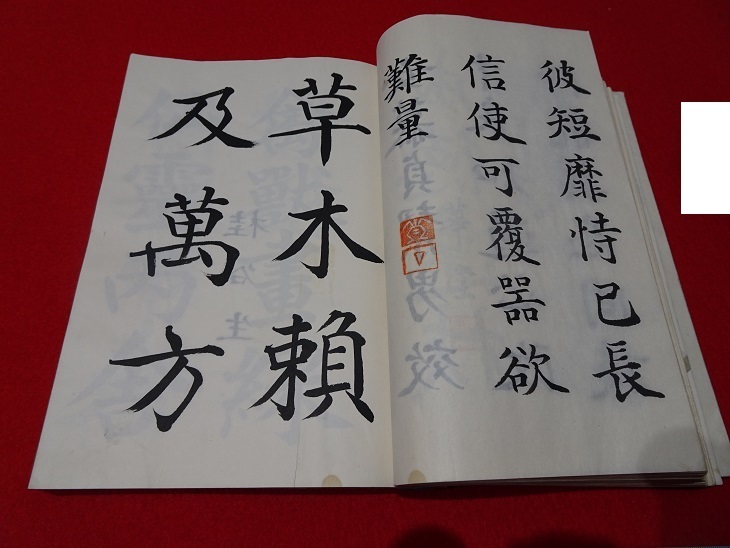 彼短靡恃己長
信使可覆器欲
難量
草木賴
及萬方